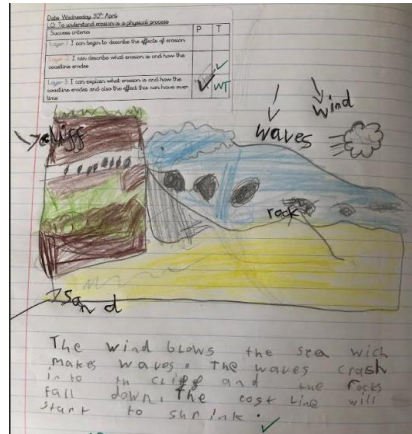 Date: Wednesday 30th April
LO: To understand erosion is a physical process
Success criteria P T
Layer 1: I can begin to describe the effects of erosion
Layer 2: I can describe what erosion is and how the
coastline erodes
Layer 3: I can explain what erosion is and how the
coastline erodes and also the effect this can have over
time
WT
wind
waves
cliff
rock
Sand
The wind blows the sea wich
makes waves. The waves crash
in to th cliff and the rocks
fall down. The cost line will
start to shrink.